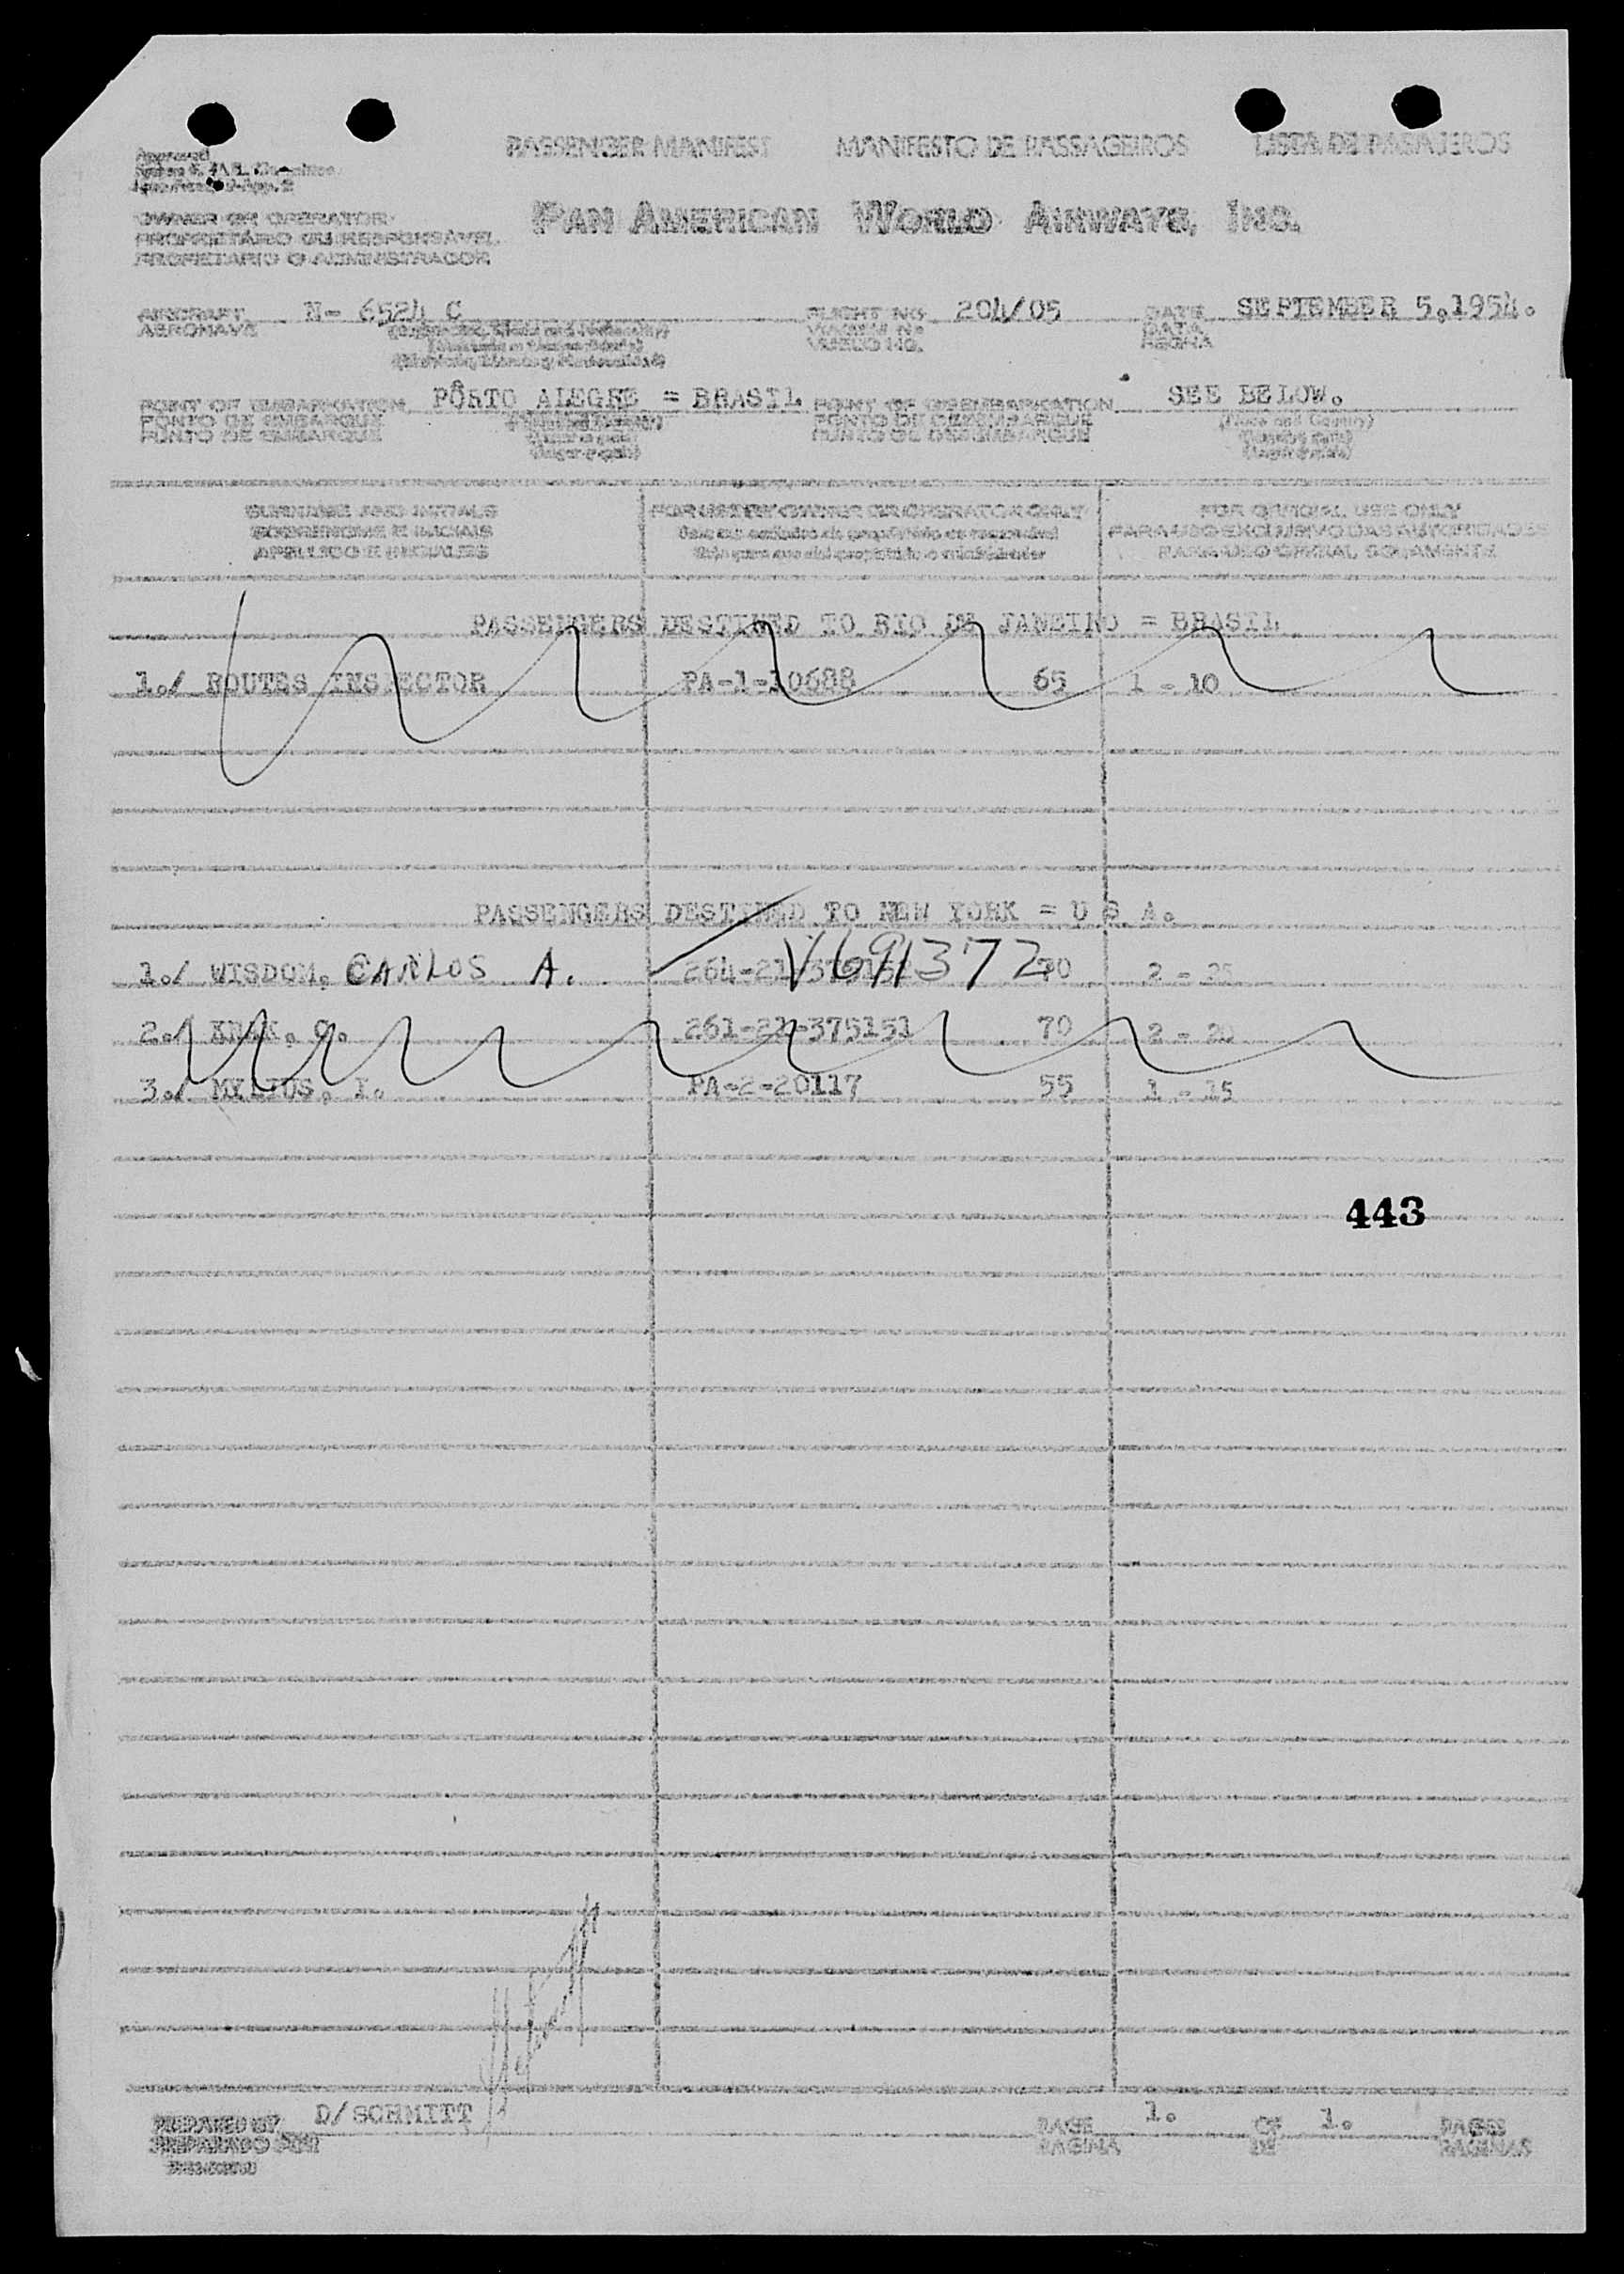 PASSENGER MANIFEST MANIFESTO DE PASSAGEIROS LISTA DE PASAJEROS
Approved
OWNER OR OPERATOR
PROPRIETÁRIO OU RESPONSÁVEL
PROPIETARIO O ADMINISTRADOR
PAN AMERICAN WORLD AIRWAYS, INC.
AIRCRAFT N- 6524 C FLIGHT NO. 204/05 DATE SEPTEMBER 5.1954.
AERONAVE VIAGEM N° DATA
VUELO NO. FECHA
POINT OF EMBARKATION PÔRTO ALEGRE = BRASIL POINT OF DISEMBARKATION SEE BELOW.
PONTO DE EMBARQUE PONTO DE DESEMBARQUE (Place and Country)
PUNTO DE EMBARQUE PUNTO DE DESEMBARQUE
SURNAME AND INITIALS FOR USE BY OWNER OR OPERATOR ONLY FOR OFFICIAL USE ONLY
SOBRENOME E INICIAIS PARA USO EXCLUSIVO DAS AUTORIDADES
APELLIDO E INICIALES PARA USO OFICIAL SOLAMENTE
PASSENGERS DESTINED TO RIO DE JANEIRO = BRASIL
1./ ROUTES INSPECTOR PA-1-10688 65 1 - 10
PASSENGERS DESTINED TO NEW YORK = U S A.
1./ WISDOM, CARLOS A. V691372 70 2 - 25
2./ 261-21-375151 70 2 - 20
3./ MYLIUS, I. PA-2-20117 55 1 - 15
443
PREPARED BY D/SCHMITT PAGE 1. OF 1. PAGES
PREPARADO POR PAGINA DE PAGINAS